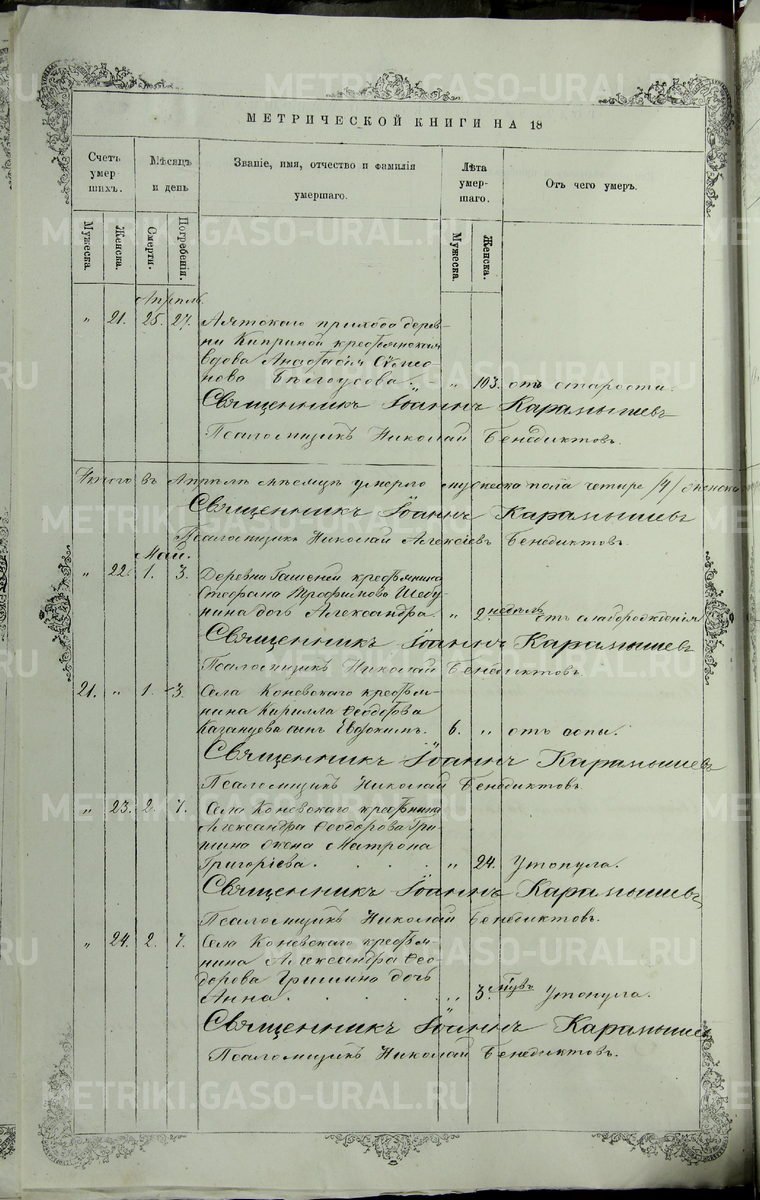 МЕТРИЧЕСКОЙ КНИГИ НА 18
Счетъ умер шихъ.
Мѣсяцъ и день
Званіе, имя, отчество и фамилія умершаго.
Лѣта умер- шаго.
Отъ чего умеръ.
Мужеска.
Женска.
Смерти.
Погребенія.
Мужеска.
Женска.
Апрѣль.
„ 21. 25. 27. Аятскаго прихода дерев-
ни Киприной крестьянская
вдова Анастасія Симео-
нова Бѣлоусова. „ 103. отъ старости.
Священникъ Іоаннъ Карамышевъ
Псаломщикъ Николай Бенедиктовъ.
Итого въ Апрѣлѣ мѣсяцѣ умерло мужеска пола четыре /4/ женска
Священникъ Іоаннъ Карамышевъ
Псаломщикъ Николай Алексѣевъ Бенедиктовъ.
Май.
„ 22. 1. 3. Деревни Гашеней крестьянина
Стефана Трофимова Шебу-
нина дочь Александра. „ 2. недѣль отъ слаборожденія
Священникъ Іоаннъ Карамышевъ
Псаломщикъ Николай Бенедиктовъ
21. „ 1. 3. Села Коневскаго крестья-
нина Кирилла Ѳеодорова
Казанцева сынъ Евдокимъ. 6. „ отъ оспы.
Священникъ Іоаннъ Карамышевъ
Псаломщикъ Николай Бенедиктовъ
„ 23. 2. 7. Села Коневскаго крестьянина
Александра Ѳеодорова Гри-
шина жена Матрона
Григоріева. „ 24. Утонула.
Священникъ Іоаннъ Карамышевъ
Псаломщикъ Николай Бенедиктовъ.
„ 24. 2. 7. Села Коневскаго крестья-
нина Александра Ѳео-
дорова Гришина дочь
Анна. „ 3. мѣсъ Утонула.
Священникъ Іоаннъ Карамышевъ
Псаломщикъ Николай Бенедиктовъ.
METRIKI.GASO-URAL.RU